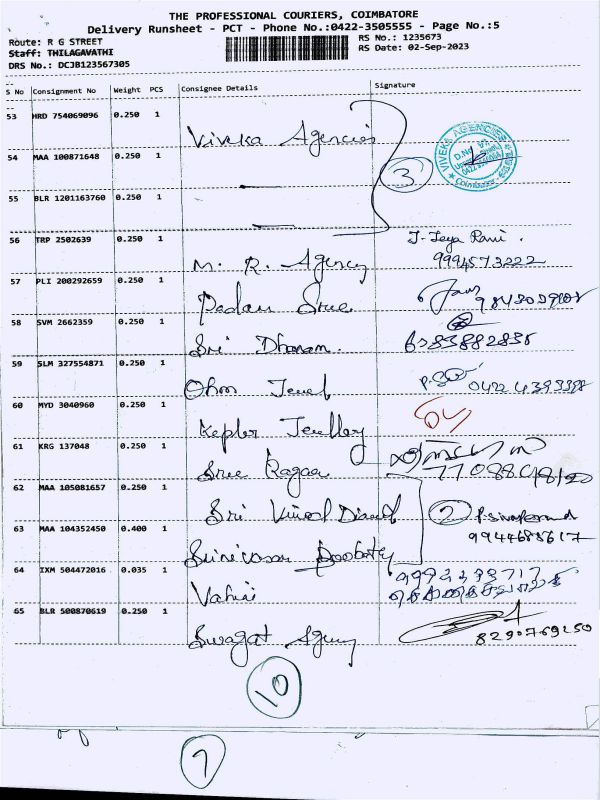 THE PROFESSIONAL COURIERS, COIMBATORE
Delivery Runsheet - PCT - Phone No.:0422-3505555 - Page No.:5
Route: R G STREET
RS No.: 1235673
Staff: THILAGAVATHI
RS Date: 02-Sep-2023
DRS No.: DCJB123567305
S No Consignment No Weight PCS Consignee Details Signature
53 HRD 754069096 0.250 1 Viveka Agencies
54 MAA 100871648 0.250 1 3
VIVEKA AGENCIES
Coimbatore
55 BLR 1201163760 0.250 1
56 TRP 2502639 0.250 1 M. R. Agency J. Jeya Rani.
9994573222
57 PLI 200292659 0.250 1 Sree
58 SVM 2662359 0.250 1 Sri Dhanam 6383882835
59 SLM 327554871 0.250 1 Ohm Jewel 0422 4393398
60 MYD 3040960 0.250 1 Kepler Jewellery
61 KRG 137048 0.250 1 Sree Ragaa
62 MAA 105081657 0.250 1 Sri 2
63 MAA 104352450 0.400 1 Srinivasa 9944688617
64 IXM 504472016 0.035 1
65 BLR 500870619 0.250 1 Swagat Agency 8290769250
10
7